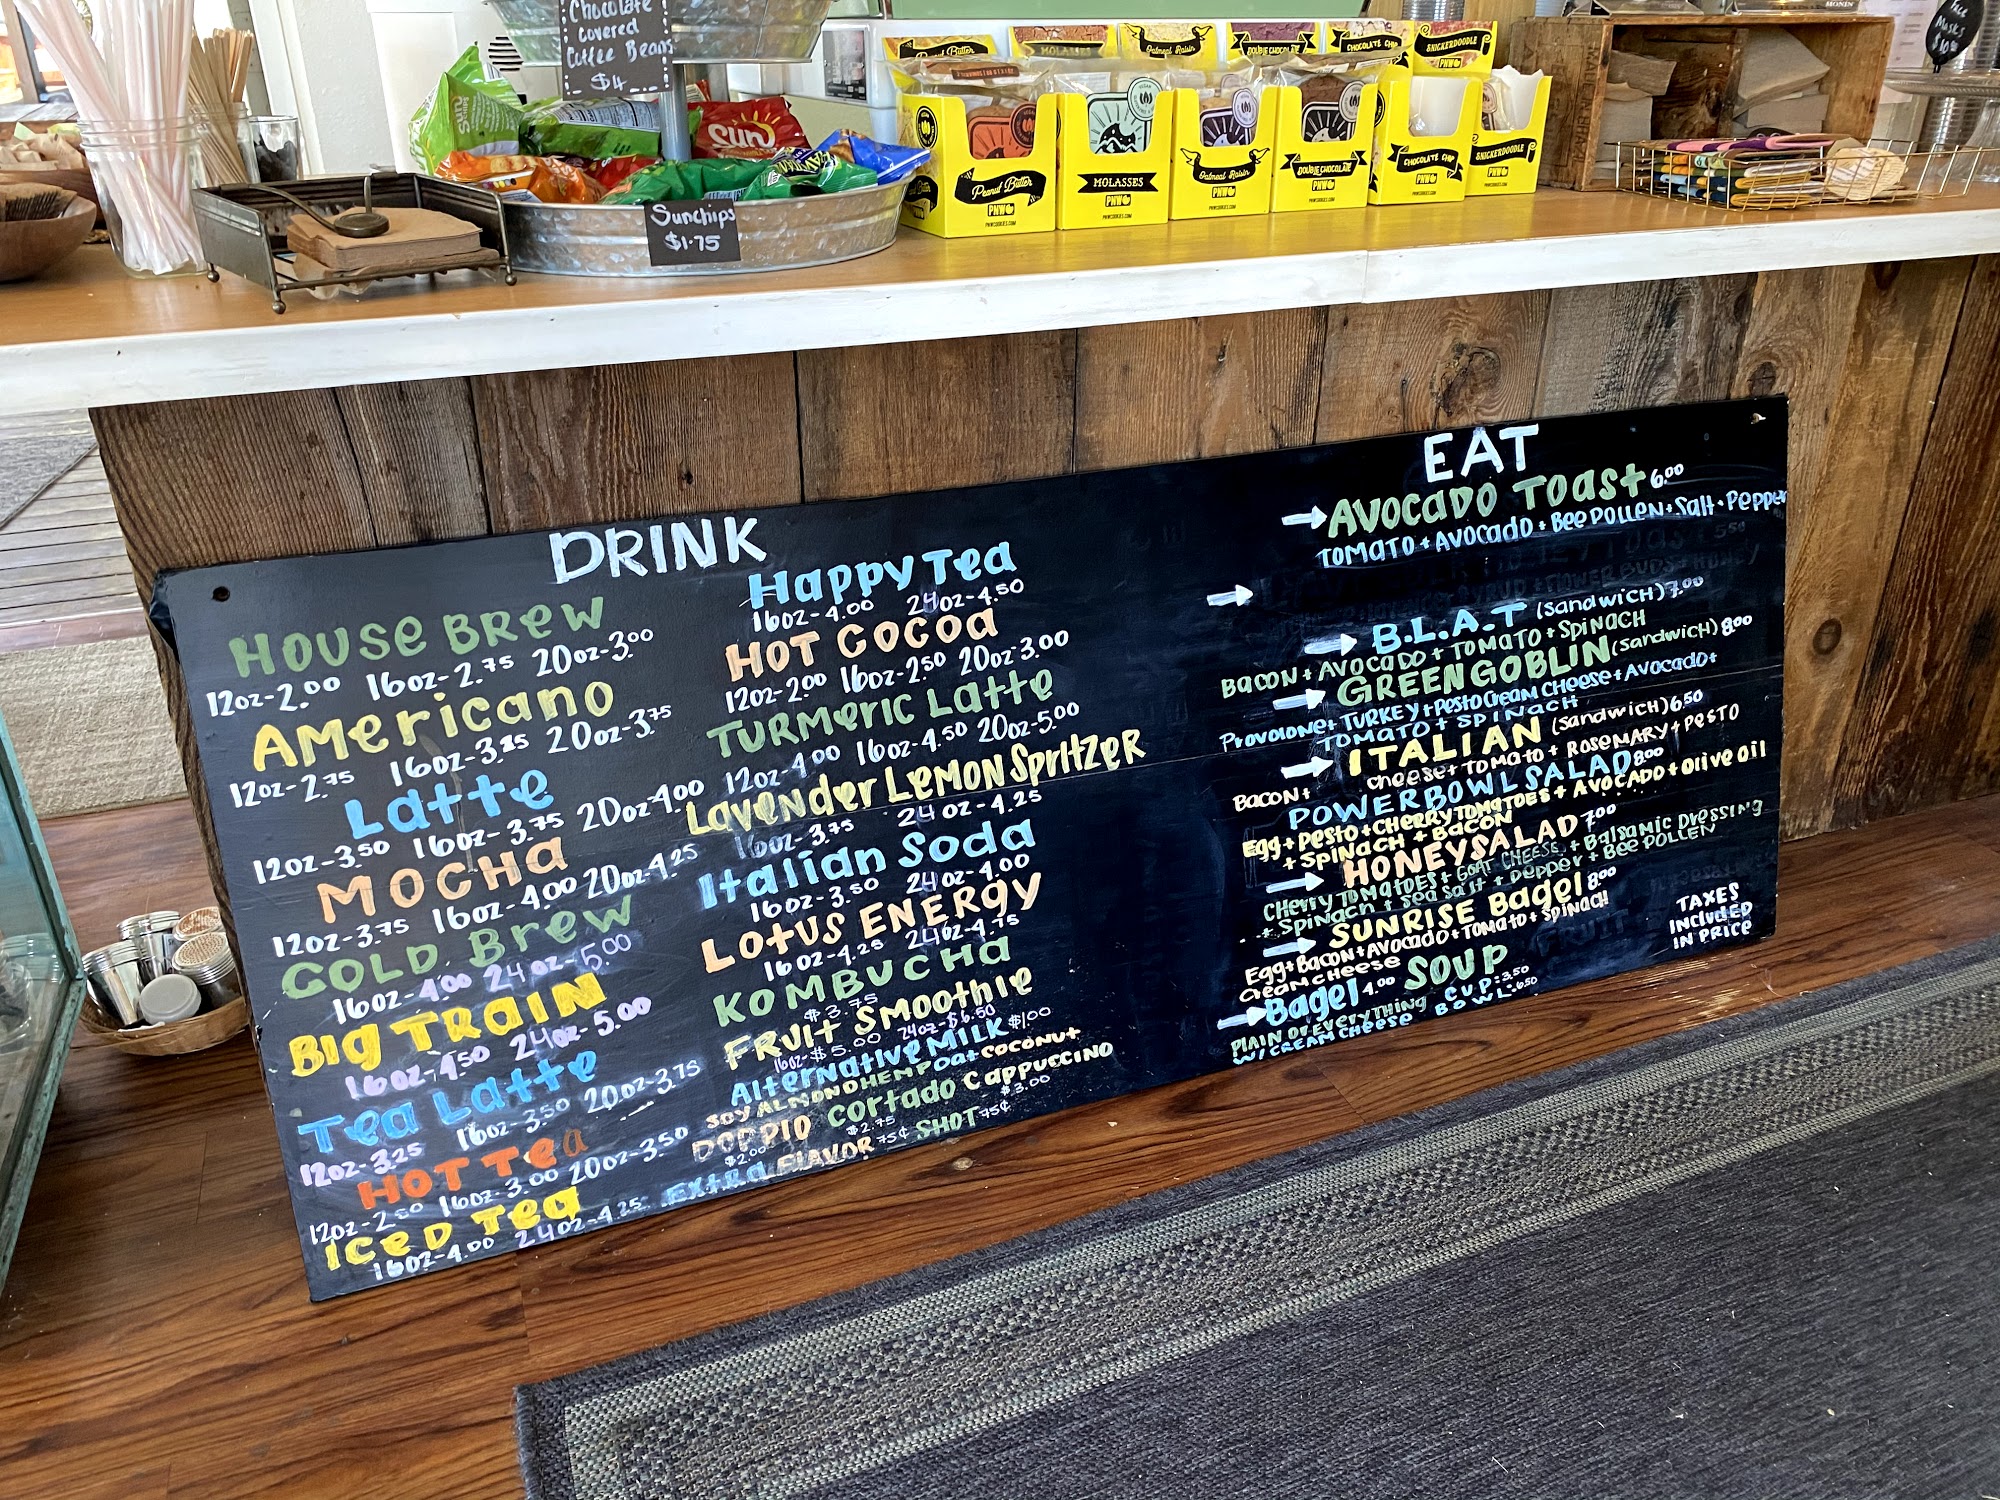 Chocolate
covered
Coffee Beans
$4
Sun
Sunchips
$1.75
Peanut Butter
MOLASSES
Oatmeal Raisin
DOUBLE CHOCOLATE
CHOCOLATE CHIP
SNICKERDOODLE
Peanut Butter
PNW
PNWCOOKIES.COM
MOLASSES
PNW
PNWCOOKIES.COM
Oatmeal Raisin
PNW
DOUBLE CHOCOLATE
PNW
CHOCOLATE CHIP
PNW
SNICKERDOODLE
PNW
MONIN
Face
Masks
$10.00
DRINK
HOUSE BREW
12oz-2.00 16oz-2.75 20oz-3.00
AMericano
12oz-2.75 16oz-3.25 20oz-3.75
Latte
12oz-3.50 16oz-3.75 20oz-4.00
MOCHa
12oz-3.75 16oz-4.00 20oz-4.25
COLD Brew
16oz-4.00 24oz-5.00
BIg TRAIN
16oz-4.50 24oz-5.00
Tea Latte
12oz-3.25 16oz-3.50 20oz-3.75
HOT Tea
12oz-2.50 16oz-3.00 20oz-3.50
ICeD Tea
16oz-4.00 24oz-4.25
Happy Tea
16oz-4.00 24oz-4.50
HOT COCOa
12oz-2.00 16oz-2.50 20oz-3.00
TURMeRIC Latte
12oz-4.00 16oz-4.50 20oz-5.00
Lavender LeMON SpritzeR
16oz-3.75 24oz-4.25
Italian Soda
16oz-3.50 24oz-4.00
LOtUS ENERgy
16oz-4.25 24oz-4.75
KOMBUCHa
$3.75
FRUIt SMOOthie
16oz-$5.00 24oz-$6.50
AlterNativeMILK $1.00
SOY ALMOND HEMP Oat COCONUT
DOPPIO cortado Cappuccino
$2.00 $2.75 $3.00
EXtRa FLAVOR 75¢ SHOT 75¢
EAT
AVOCADO Toast 6.00
TOMATO + AVOCADO + Bee POLLEN + Salt + Pepper
B.L.A.T (Sandwich) 7.00
BACON + AVOCADO + TOMATO + SPINACH
GREEN GOBLIN (Sandwich) 8.00
Provolone + TURKEY + Pesto Cream CHeese + AVOCADO +
TOMATO + SPINACH
ITALIAN (Sandwich) 6.50
BACON + CHeese + TOMATO + ROSEMARY + PESTO
POWERBOWL SALAD 8.00
Egg + PESTO + CHeRRyTOMATOES + AVOCADO + Olive Oil
+ SPINACH + BACON
HONEYSALAD 7.00
CHeRRY TOMATOES + GOAT CHEESE + Balsamic Dressing
+ SPINACH + Sea Salt + Pepper + Bee POLLEN
SUNRISE Bagel 8.00
Egg + BACON + AVOCADO + TOMATO + SPINACH
CReam CHeese
Bagel 4.00
PLAIN Or EveryTHING
W/ CREAM CHeese
SOUP
CUP: 3.50
BOWL: 6.50
TAXES
INCLUDED
IN PRICE